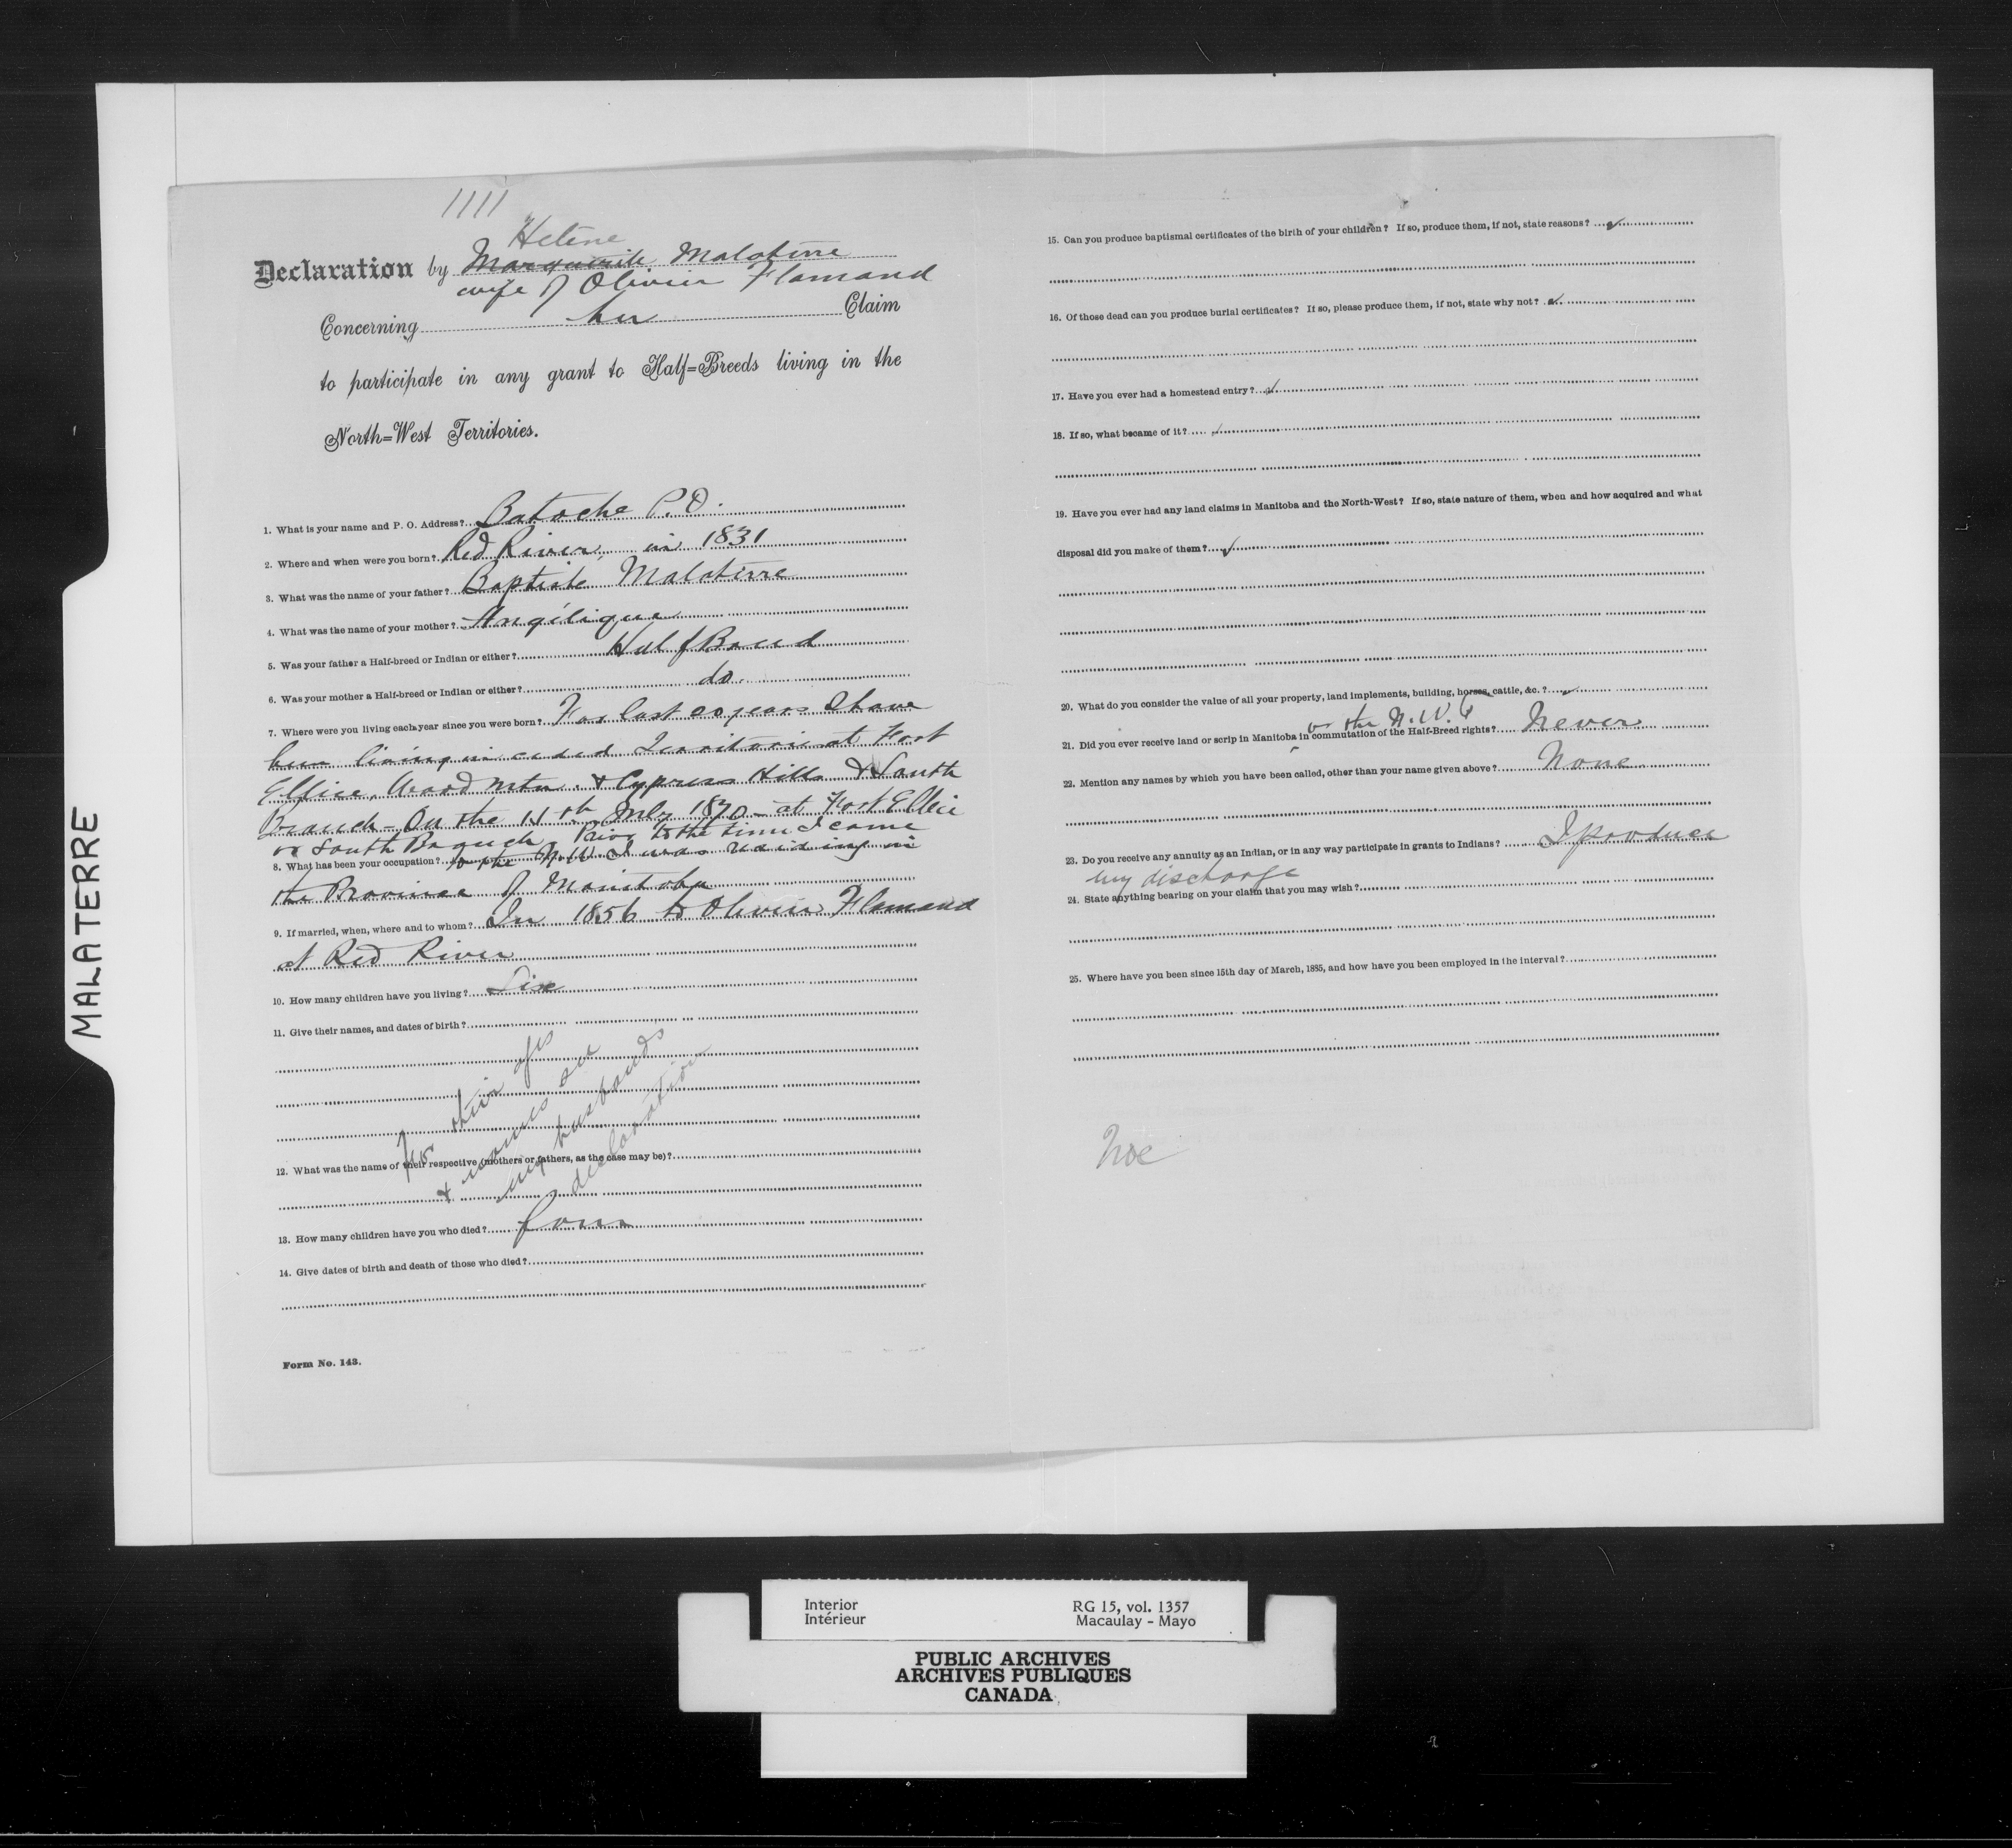 MALATERRE
1111
Helène
Declaration by Marguerite Malaterre
wife of Olivier Flamand
Concerning her Claim
to participate in any grant to Half=Breeds living in the
North=West Territories.
1. What is your name and P. O. Address? Batoche P.O.
2. Where and when were you born? Red River in 1831
3. What was the name of your father? Baptiste Malaterre
4. What was the name of your mother? Angélique
5. Was your father a Half-breed or Indian or either? Half Breed
6. Was your mother a Half-breed or Indian or either? do.
7. Where were you living each year since you were born? For last 20 years I have
been living in ceded Territories at Fort
Ellice, Wood Mtn. & Cypress Hills & South
Branch - On the 15th July 1870 - at Fort Ellice
or South Branch Prior to the time I came
8. What has been your occupation? to the N.W. I was residing in
the Province of Manitoba
9. If married, when, where and to whom? In 1856 to Olivier Flamand
at Red River
10. How many children have you living? Six
11. Give their names, and dates of birth?
For their ages
& names see
my husbands
declaration
12. What was the name of their respective (mothers or fathers, as the case may be)?
13. How many children have you who died? four
14. Give dates of birth and death of those who died?
Form No. 143.
15. Can you produce baptismal certificates of the birth of your children? If so, produce them, if not, state reasons?
16. Of those dead can you produce burial certificates? If so, please produce them, if not, state why not?
17. Have you ever had a homestead entry?
18. If so, what became of it?
19. Have you ever had any land claims in Manitoba and the North-West? If so, state nature of them, when and how acquired and what
disposal did you make of them?
20. What do you consider the value of all your property, land implements, building, horses, cattle, &c.?
or the N.W.
21. Did you ever receive land or scrip in Manitoba in commutation of the Half-Breed rights? Never
22. Mention any names by which you have been called, other than your name given above? None
23. Do you receive any annuity as an Indian, or in any way participate in grants to Indians? I produce
my discharge
24. State anything bearing on your claim that you may wish?
25. Where have you been since 15th day of March, 1885, and how have you been employed in the interval?
Interior
Intérieur
RG 15, vol. 1357
Macaulay - Mayo
PUBLIC ARCHIVES
ARCHIVES PUBLIQUES
CANADA